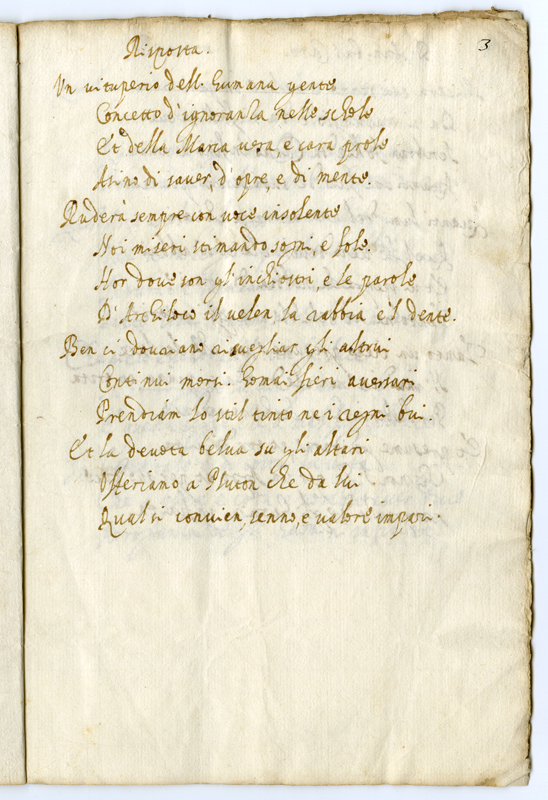 3
Risposta.
Un vituperio dell' humana gente
Concetto d'ignoranza nelle schole
Et della Marca vera e cara prole
Asino di saver, d'opre, e di mente.
Ruderà sempre con voce insolente
Noi miseri stimando sogni, e fole.
Hor dove son gl'inchiostri, e le parole
D'Archiloco il velen, la rabbia e'l dente.
Ben ci dovriano risvegliar gli altrui
Continui morsi. homai fieri aversari
Prendiam lo stil tinto ne i regni bui.
Et la devota belva su gli altari
Offeriamo a Pluton che da lui
Qual si convien, senno, e valore impari.